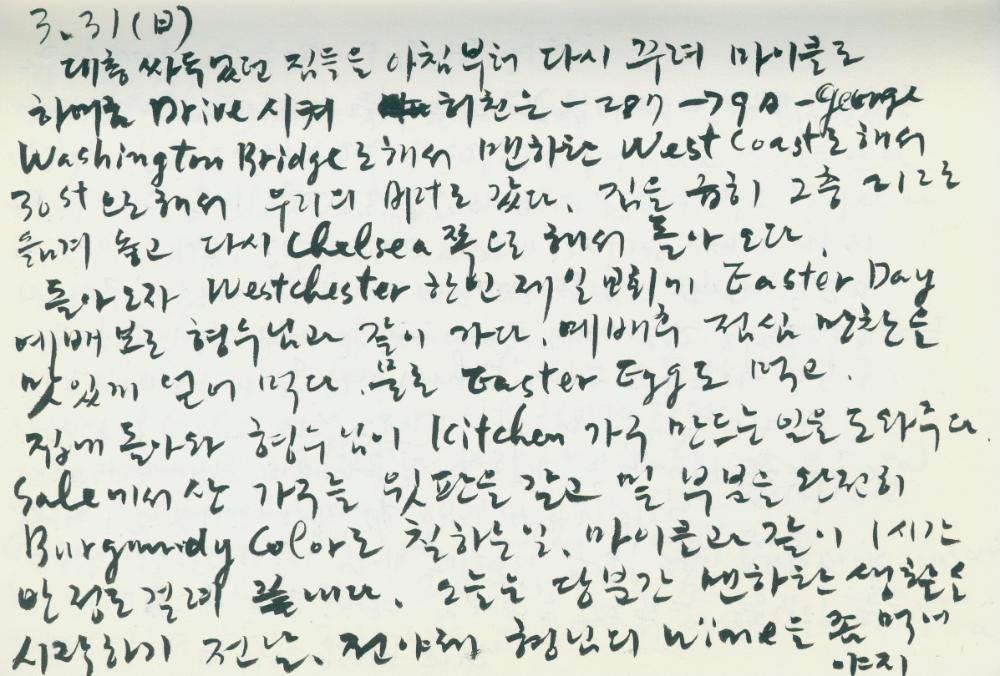 3.31(日)
대충 싸두었던 짐들을 아침부터 다시 꾸려 마이클로
하여금 Drive 시켜 허친슨 - 287 → 9A - George
Washington Bridge로 해서 맨하탄 West Coast로 해서
30st으로 해서 우리의 갔다. 짐을 급히 2층
옮겨 놓고 다시 Chelsea 쪽으로 해서 돌아오다
돌아오자 Westchester 한인제일교회에 Easter Day
예배 보러 형수님과 같이 가다. 예배후 점심 만찬을
맛있게 얻어 먹다. 물론 Easter Egg도 먹고.
집에 돌아와 형수님이 Kitchen 가구 만드는 일을 도와주다.
Sale에서 산 가구를 윗판을 갈고 밑 부분을 완전히
Burgundy Color로 칠하는 일. 마이클과 같이 1시간
반 정도 걸려 끝내다. 오늘은 당분간 맨하탄 생활을
시작하기 전날. 전야제 형님의 Wine을 좀 먹어
야지